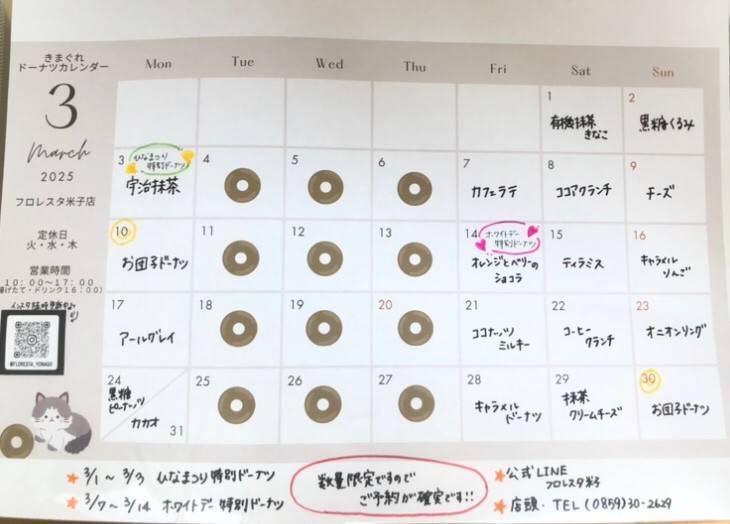 きまぐれ
ドーナツカレンダー
3
March
2025
フロレスタ米子店
定休日
火・水・木
営業時間
10:00〜17:00
Mon Tue Wed Thu Fri Sat Sun
1 2
有機抹茶
きなこ
黒糖くるみ
3 4 5 6 7 8 9
ひなまつり
特別ドーナツ
宇治抹茶
カフェラテ
ココアクランチ
チーズ
10 11 12 13 14 15 16
お団子ドーナツ
ホワイトデー
特別ドーナツ
オレンジとベリーの
ショコラ
ティラミス
キャラメル
りんご
17 18 19 20 21 22 23
アールグレイ
ココナッツ
ミルキー
コーヒー
クランチ
オニオンリング
24 25 26 27 28 29 30
黒糖
ピーナッツ
カカオ 31
キャラメル
ドーナツ
抹茶
クリームチーズ
お団子ドーナツ
@FLORESTA_YONAGO
3/1〜3/3 ひなまつり特別ドーナツ
3/7〜3/14 ホワイトデー特別ドーナツ
数量限定ですので
ご予約が確実です!!
公式LINE
フロレスタ米子
店頭・TEL(0859)30-2629